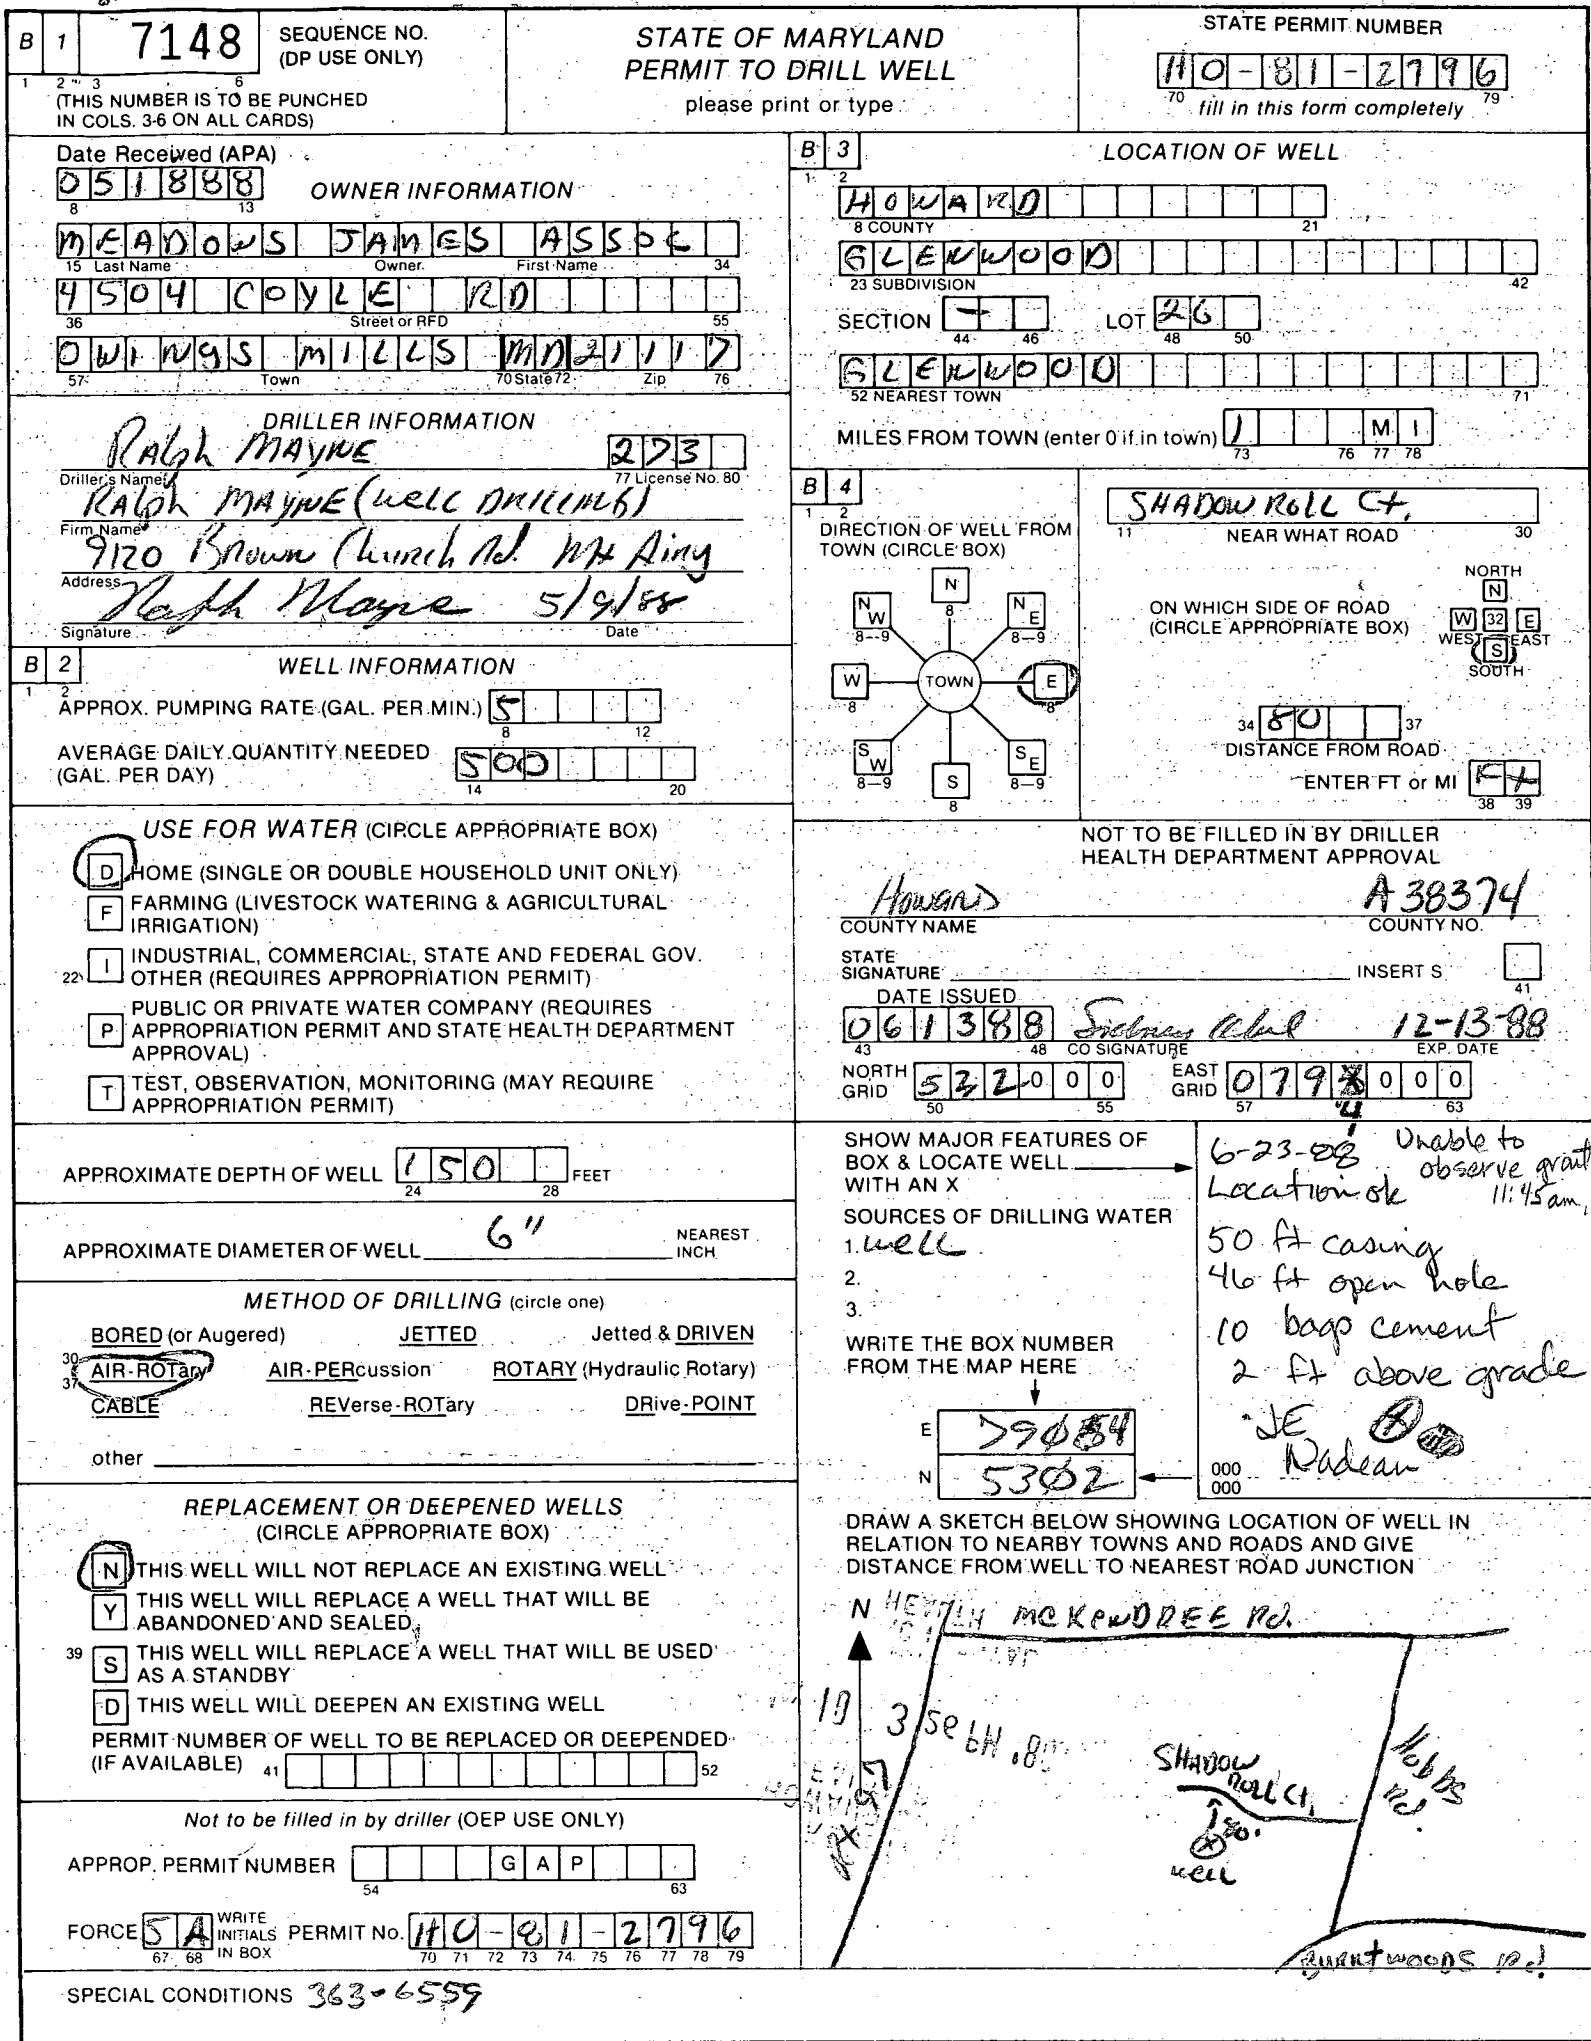 B 1 7148 SEQUENCE NO.
(DP USE ONLY)
1 2 3 6
(THIS NUMBER IS TO BE PUNCHED
IN COLS. 3-6 ON ALL CARDS)
STATE OF MARYLAND
PERMIT TO DRILL WELL
please print or type
STATE PERMIT NUMBER
HO-81-2796
70 fill in this form completely 79
Date Received (APA)
051888
8 13
OWNER INFORMATION
MEADOWS JAMES ASSOC
15 Last Name Owner First Name 34
4504 COYLE RD
36 Street or RFD 55
OWINGS MILLS MD21117
57 Town 70 State 72 Zip 76
DRILLER INFORMATION
Ralph MAYNE 273
Driller's Name 77 License No. 80
Ralph MAYNE (Well DRILLING)
Firm Name
9120 Brown Church Rd. Mt Airy
Address
Ralph Mayne 5/9/88
Signature Date
B 2 WELL INFORMATION
1 2
APPROX. PUMPING RATE (GAL. PER MIN.) 5
8 12
AVERAGE DAILY QUANTITY NEEDED
(GAL. PER DAY) 500
14 20
USE FOR WATER (CIRCLE APPROPRIATE BOX)
D HOME (SINGLE OR DOUBLE HOUSEHOLD UNIT ONLY)
F FARMING (LIVESTOCK WATERING & AGRICULTURAL
IRRIGATION)
22 I INDUSTRIAL, COMMERCIAL, STATE AND FEDERAL GOV.
OTHER (REQUIRES APPROPRIATION PERMIT)
P PUBLIC OR PRIVATE WATER COMPANY (REQUIRES
APPROPRIATION PERMIT AND STATE HEALTH DEPARTMENT
APPROVAL)
T TEST, OBSERVATION, MONITORING (MAY REQUIRE
APPROPRIATION PERMIT)
APPROXIMATE DEPTH OF WELL 150 FEET
24 28
APPROXIMATE DIAMETER OF WELL 6" NEAREST
INCH
METHOD OF DRILLING (circle one)
BORED (or Augered) JETTED Jetted & DRIVEN
30 AIR-ROTary AIR-PERcussion ROTARY (Hydraulic Rotary)
37 CABLE REVerse-ROTary DRive-POINT
other
REPLACEMENT OR DEEPENED WELLS
(CIRCLE APPROPRIATE BOX)
N THIS WELL WILL NOT REPLACE AN EXISTING WELL
Y THIS WELL WILL REPLACE A WELL THAT WILL BE
ABANDONED AND SEALED
39 S THIS WELL WILL REPLACE A WELL THAT WILL BE USED
AS A STANDBY
D THIS WELL WILL DEEPEN AN EXISTING WELL
PERMIT NUMBER OF WELL TO BE REPLACED OR DEEPENDED
(IF AVAILABLE) 41 52
Not to be filled in by driller (OEP USE ONLY)
APPROP. PERMIT NUMBER GAP
54 63
FORCE SA WRITE INITIALS IN BOX PERMIT No. HO-81-2796
67 68 70 71 72 73 74 75 76 77 78 79
SPECIAL CONDITIONS 363-6559
B 3 LOCATION OF WELL
1 2
HOWARD
8 COUNTY 21
GLENWOOD
23 SUBDIVISION 42
SECTION - LOT 26
44 46 48 50
GLENWOOD
52 NEAREST TOWN 71
MILES FROM TOWN (enter 0 if in town) 1 MI
73 76 77 78
B 4
1 2
DIRECTION OF WELL FROM
TOWN (CIRCLE BOX)
N
8
NW NE
8-9 8-9
W TOWN E
8 8
SW SE
8-9 8-9
S
8
SHADOW ROLL Ct.
11 NEAR WHAT ROAD 30
ON WHICH SIDE OF ROAD
(CIRCLE APPROPRIATE BOX)
NORTH
N
W 32 E
WEST EAST
S
SOUTH
34 80 37
DISTANCE FROM ROAD
ENTER FT or MI Ft
38 39
NOT TO BE FILLED IN BY DRILLER
HEALTH DEPARTMENT APPROVAL
Howard A 38374
COUNTY NAME COUNTY NO.
STATE
SIGNATURE INSERT S
41
DATE ISSUED
061388 12-13-88
43 48 CO SIGNATURE EXP. DATE
NORTH GRID 532000 EAST GRID 0794000
50 55 57 63
SHOW MAJOR FEATURES OF
BOX & LOCATE WELL
WITH AN X
SOURCES OF DRILLING WATER
1. Well
2.
3.
WRITE THE BOX NUMBER
FROM THE MAP HERE
E
N 5302
000
000
6-23-88 Unable to
observe grout
Location ok 11:45 am,
50 ft casing
46 ft open hole
10 bags cement
2 ft above grade
JE
Nadeau
DRAW A SKETCH BELOW SHOWING LOCATION OF WELL IN
RELATION TO NEARBY TOWNS AND ROADS AND GIVE
DISTANCE FROM WELL TO NEAREST ROAD JUNCTION
N MCKENDREE Rd.
SHADOW
ROLL Ct.
Hobbs
Rd.
80.
well
Rt 97
BURNT WOODS Rd